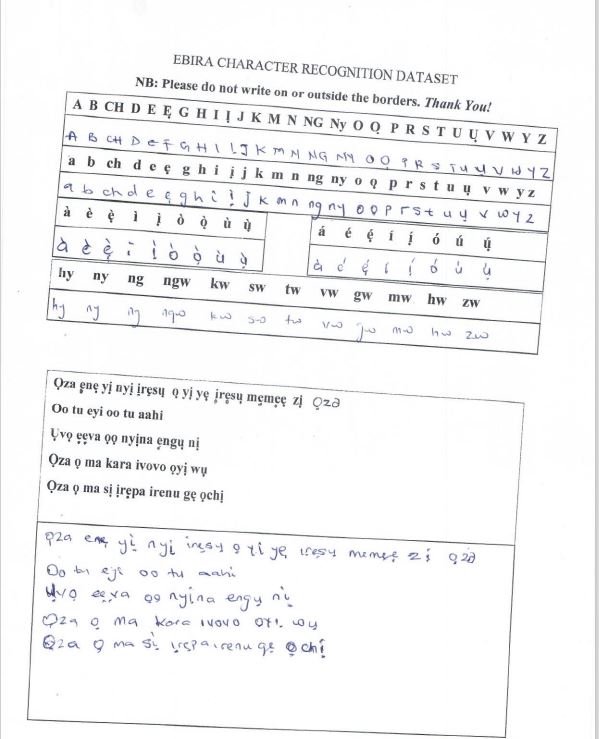 EBIRA CHARACTER RECOGNITION DATASET
NB: Please do not write on or outside the borders. Thank You!
A B CH D E Ẹ G H I Ị J K M N NG Ny O Ọ P R S T U Ụ V W Y Z
A B CH D E Ẹ G H I Ị J K M N NG NY O Ọ P R S T U Ụ V W Y Z
a b ch d e ẹ g h i ị j k m n ng ny o ọ p r s t u ụ v w y z
a b ch d e ẹ g h i ị J k m n ng ny o ọ p r s t u ụ v w y z
à è ẹ̀ ì ị̀ ò ọ̀ ù ụ̀
à è ẹ̀ ì ị̀ ò ọ̀ ù ụ̀
á é ẹ́ í ị́ ó ú ụ́
à é ẹ́ í ị́ ó ú ụ́
hy ny ng ngw kw sw tw vw gw mw hw zw
hy ny ng ngw kw sw tw vw gw mw hw zw
Ọza ẹnẹ yị nyị ịrẹsụ ọ yị yẹ ịrẹsụ mẹmẹẹ zị Ọzà
Oo tu eyi oo tu aahi
Ụvọ ẹẹva ọọ nyịna ẹngụ nị
Ọza ọ ma kara ivovo ọyị wụ
Ọza ọ ma sị ịrẹpa irenu gẹ ọchị
Ọza enẹ yị nyị ịrẹsụ ọ yị yẹ ịrẹsụ memẹẹ zị ọzà
Oo tu eji oo tu aahi
Ụvọ ẹẹva ọọ nyịna engụ nị
Ọza ọ ma kara ivovo ọyị wụ
Ọza ọ ma sị ịrẹpa irenu gẹ ọchị